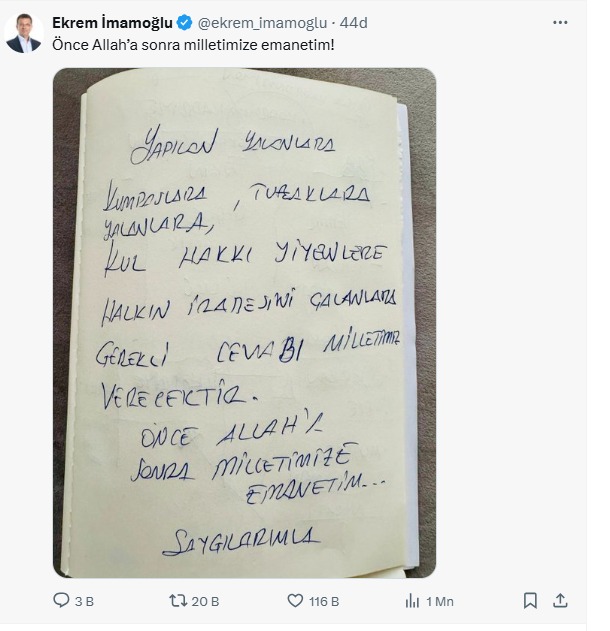 Ekrem İmamoğlu @ekrem_imamoglu · 44d
Önce Allah’a sonra milletimize emanetim!
YAPILAN YALANLARA
KUMPASLARA, TUZAKLARA
YALANLARA,
KUL HAKKI YİYENLERE
HALKIN İRADESİNİ ÇALANLARA
GEREKLİ CEVABI MİLLETİMİZ
VERECEKTİR.
ÖNCE ALLAH'A
SONRA MİLLETİMİZE
EMANETİM...
SAYGILARIMLA
3 B 20 B 116 B 1 Mn